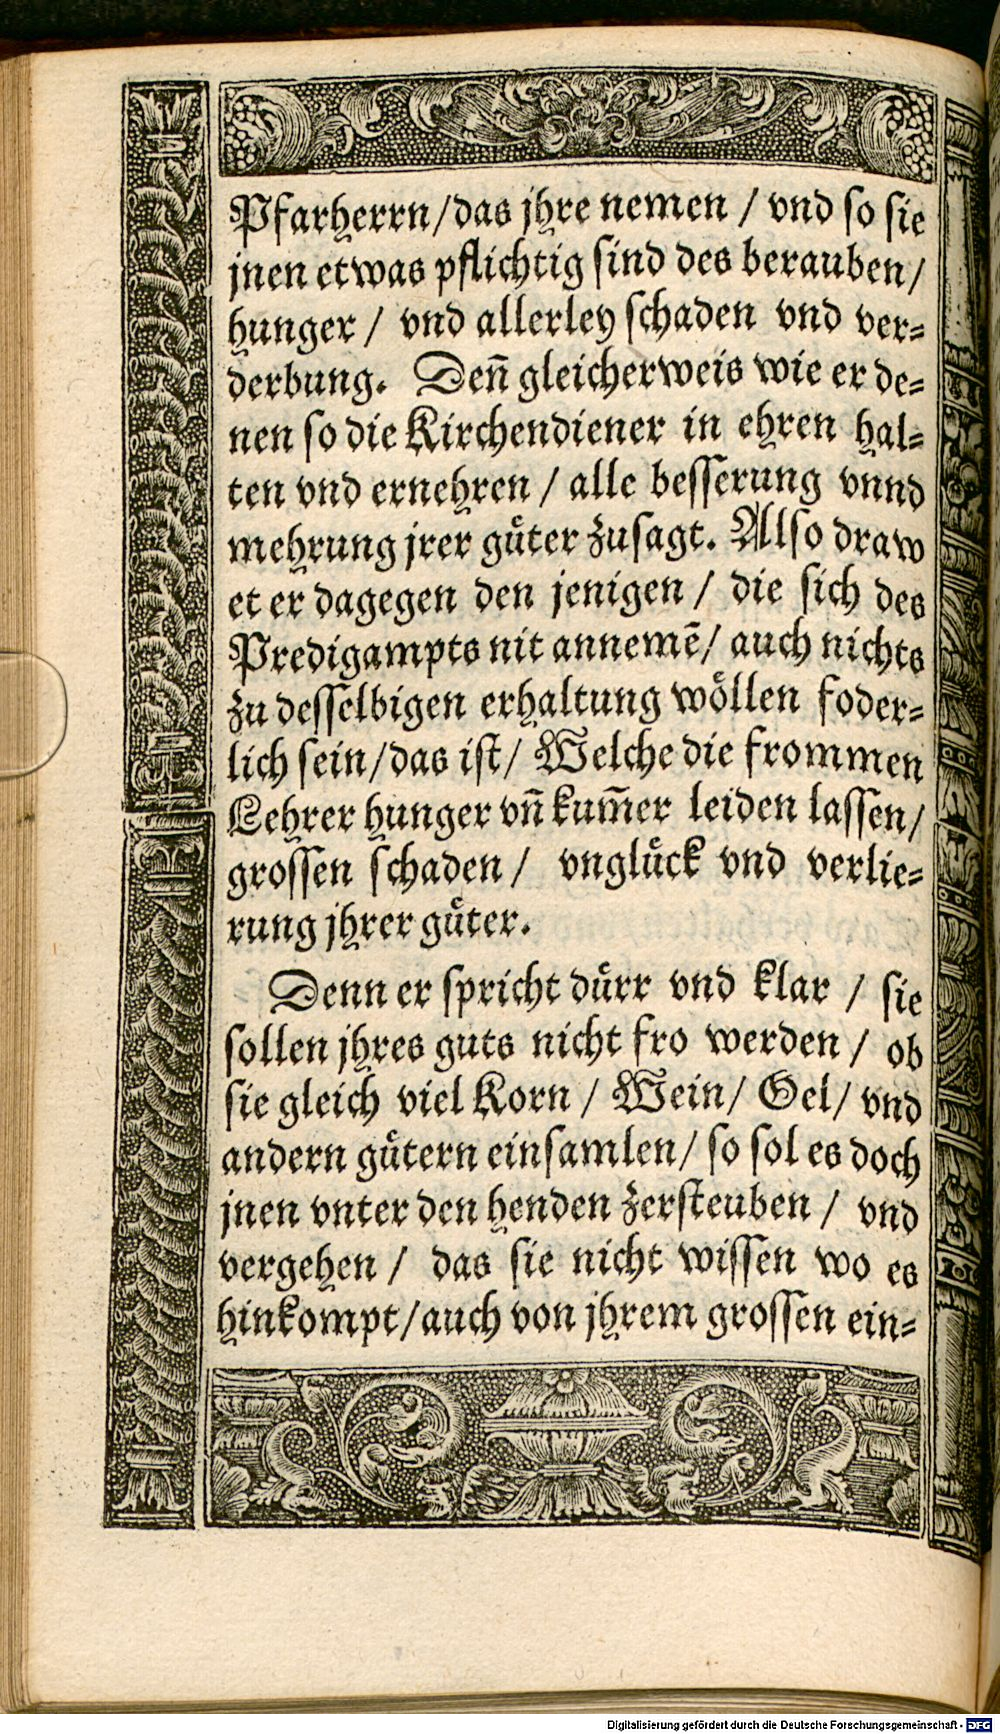 Pfarherrn/das jhre nemen / vnd so sie
jnen etwas pflichtig sind des berauben/
hunger / vnd allerley schaden vnd ver⸗
derbung. Deñ gleicherweis wie er de⸗
nen so die Kirchendiener in ehren hal⸗
ten vnd ernehren / alle besserung vnnd
mehrung jrer guͤter zusagt. Also draw
et er dagegen den jenigen / die sich des
Predigampts nit annemẽ/ auch nichts
zu desselbigen erhaltung woͤllen foder⸗
lich sein/das ist/ Welche die frommen
Lehrer hunger vñ kum̃er leiden lassen/
grossen schaden / vngluͤck vnd verlie⸗
rung jhrer guͤter.
Denn er spricht duͤrr vnd klar / sie
sollen jhres guts nicht fro werden / ob
sie gleich viel Korn / Wein/ Oel/ vnd
andern guͤtern einsamlen/ so sol es doch
jnen vnter den henden zersteuben / vnd
vergehen / das sie nicht wissen wo es
hinkompt/auch von jhrem grossen ein⸗
Digitalisierung gefördert durch die Deutsche Forschungsgemeinschaft - DFG